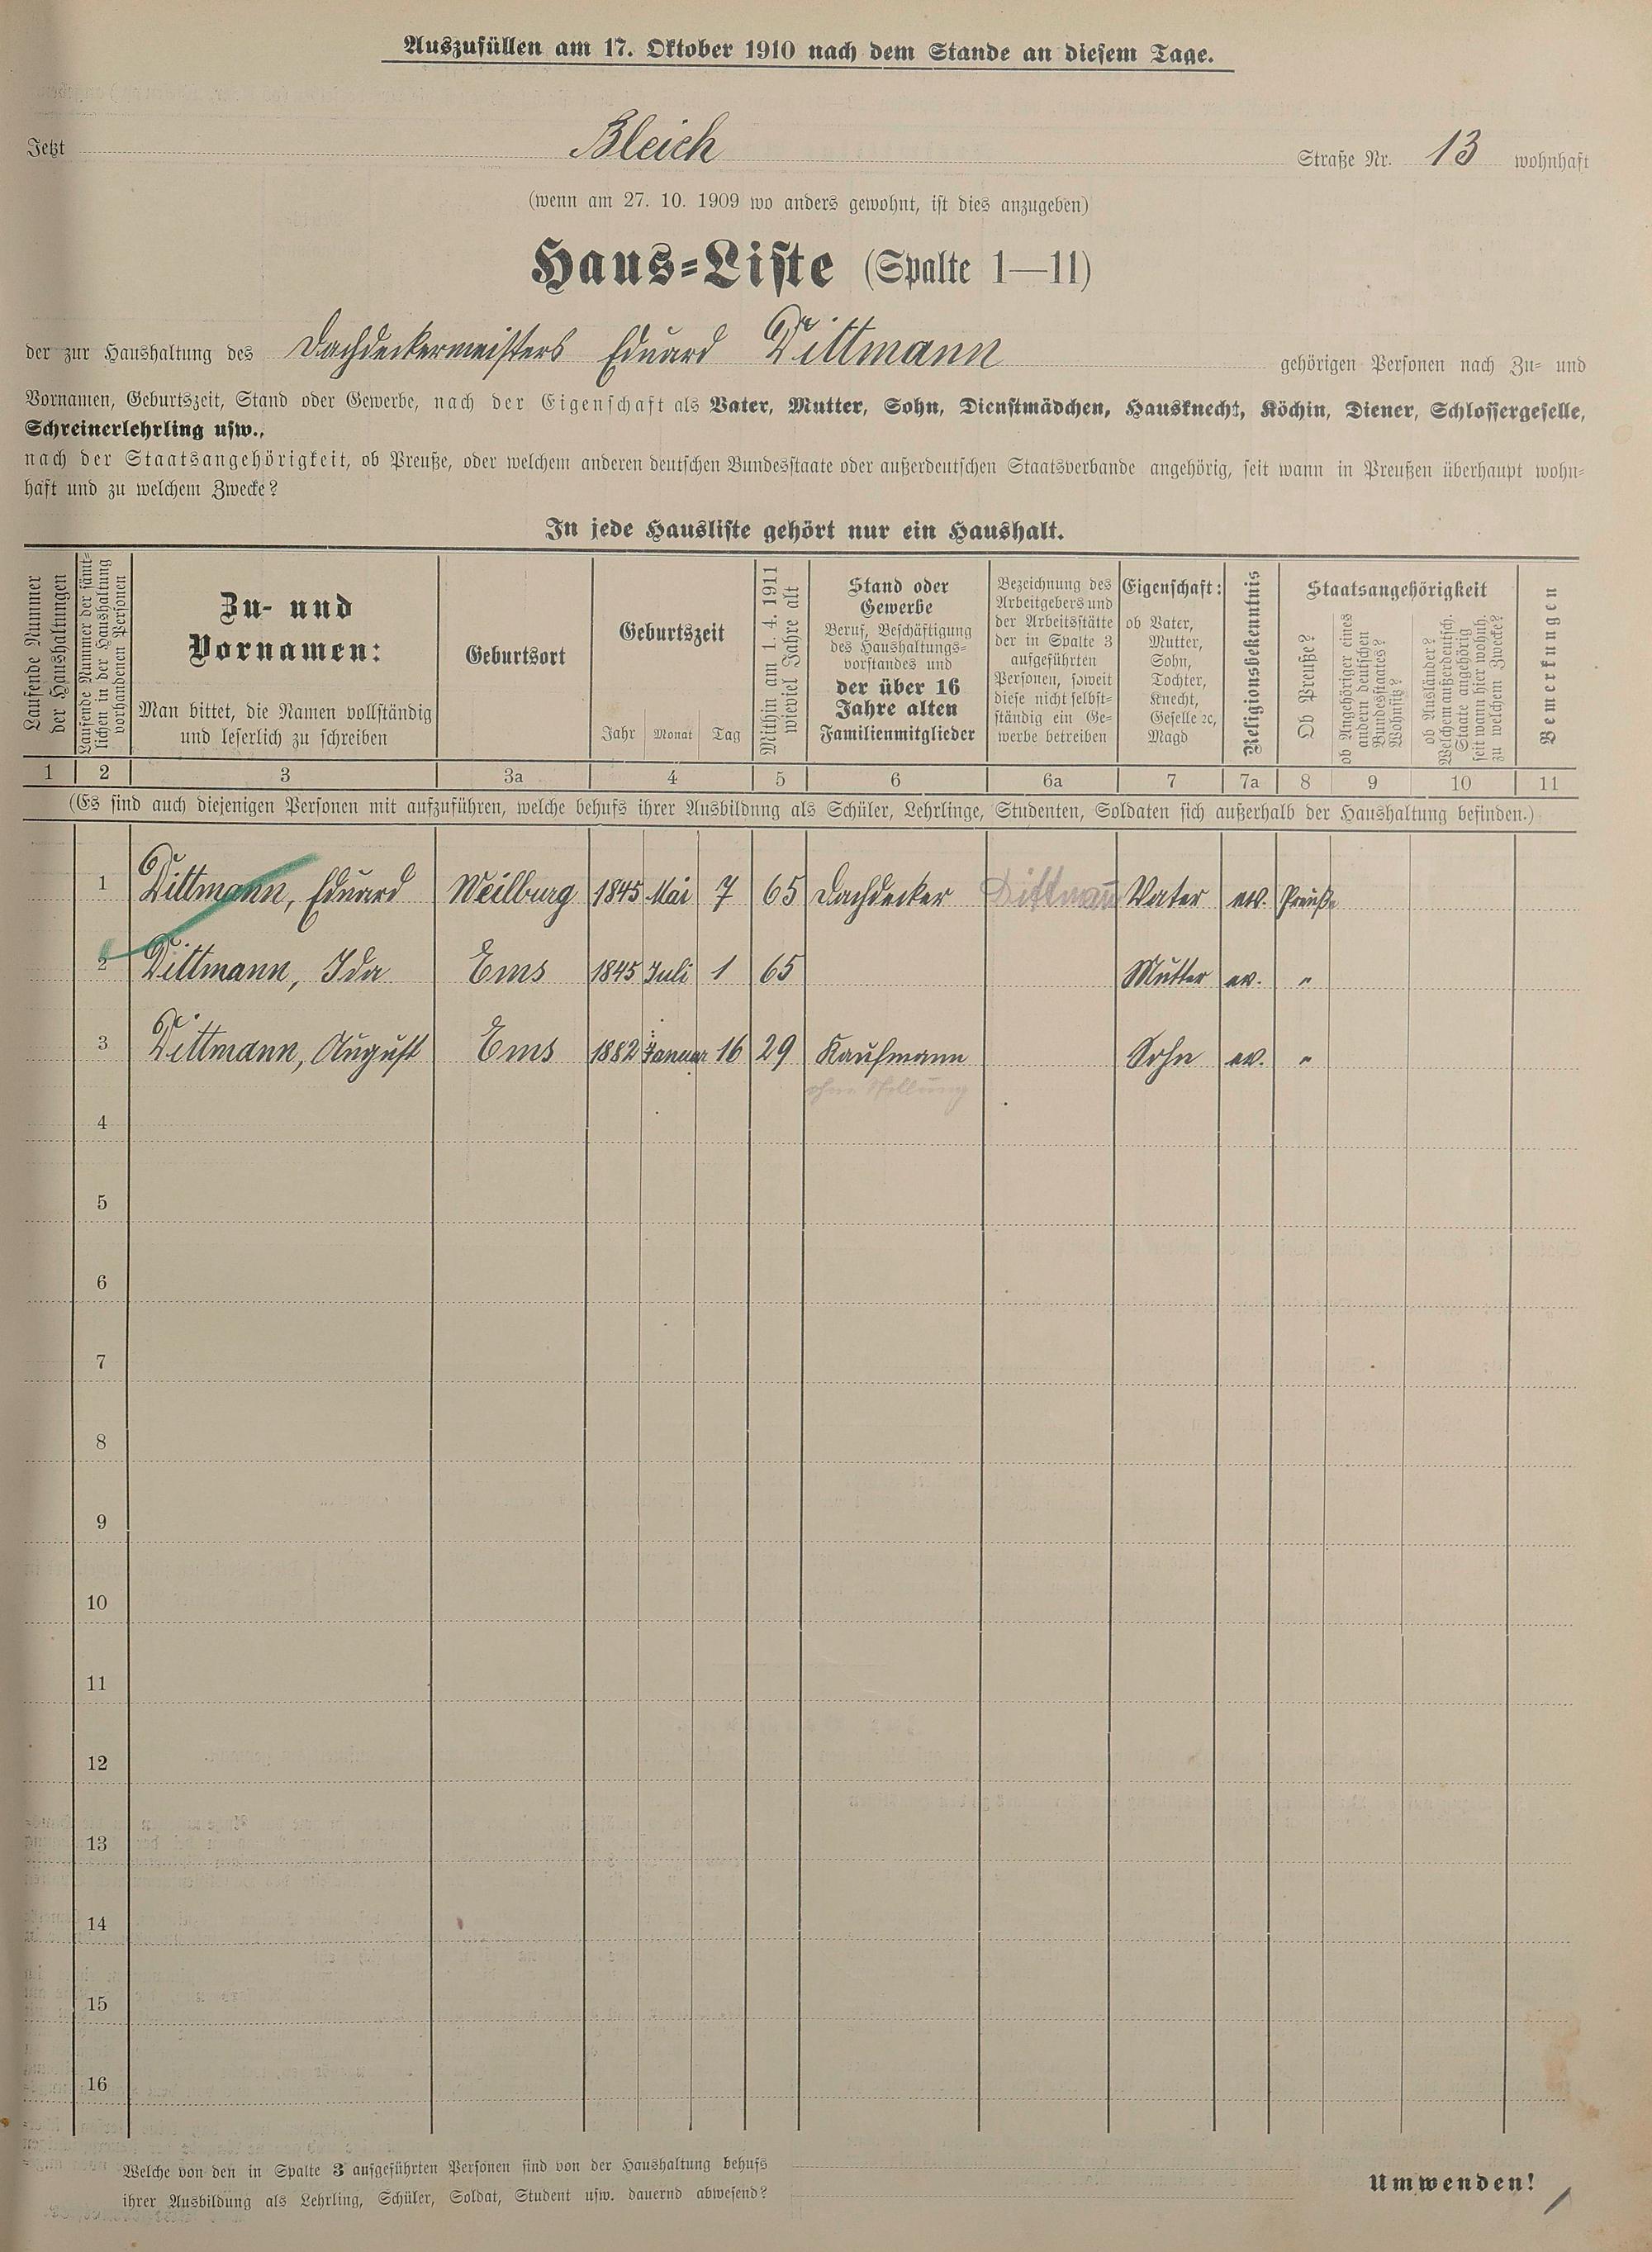 Auszufüllen am 17. Oktober 1910 nach dem Stande an diesem Tage.
Jetzt Bleich Straße Nr. 13 wohnhaft
(wenn am 27. 10. 1909 wo anders gewohnt, ist dies anzugeben)
Haus-Liste (Spalte 1—11)
der zur Haushaltung des Dachdeckermeisters Eduard Dittmann gehörigen Personen nach Zu- und
Vornamen, Geburtszeit, Stand oder Gewerbe, nach der Eigenschaft als Vater, Mutter, Sohn, Dienstmädchen, Hausknecht, Köchin, Diener, Schlossergeselle,
Schreinerlehrling usw.,
nach der Staatsangehörigkeit, ob Preuße, oder welchem anderen deutschen Bundesstaate oder außerdeutschen Staatsverbande angehörig, seit wann in Preußen überhaupt wohn-
haft und zu welchem Zwecke?
In jede Hausliste gehört nur ein Haushalt.
Laufende Nummer
der Haushaltungen
Laufende Nummer der sämt-
lichen in der Haushaltung
vorhandenen Personen
Zu- und
Vornamen:
Man bittet, die Namen vollständig
und leserlich zu schreiben
Geburtsort
Geburtszeit
Jahr Monat Tag
Mithin am 1. 4. 1911
wieviel Jahre alt
Stand oder
Gewerbe
Beruf, Beschäftigung
des Haushaltungs-
vorstandes und
der über 16
Jahre alten
Familienmitglieder
Bezeichnung des
Arbeitgebers und
der Arbeitsstätte
der in Spalte 3
aufgeführten
Personen, soweit
diese nicht selbst-
ständig ein Ge-
werbe betreiben
Eigenschaft:
ob Vater,
Mutter,
Sohn,
Tochter,
Knecht,
Geselle ꝛc,
Magd
Religionsbekenntnis
Staatsangehörigkeit
Ob Preuße?
ob Angehöriger eines
andern deutschen
Bundesstaates?
Wohnsitz?
ob Ausländer?
Welchem außerdeutsch.
Staate angehörig
seit wann hier wohnh.
zu welchem Zwecke?
Bemerkungen
1 2 3 3a 4 5 6 6a 7 7a 8 9 10 11
(Es sind auch diejenigen Personen mit aufzuführen, welche behufs ihrer Ausbildung als Schüler, Lehrlinge, Studenten, Soldaten sich außerhalb der Haushaltung befinden.)
1 Dittmann, Eduard Weilburg 1845 Mai 7 65 Dachdecker Dittmann Vater ev. Preuße
2 Dittmann, Ida Ems 1845 Juli 1 65 Mutter ev. "
3 Dittmann, August Ems 1882 Januar 16 29 Kaufmann Sohn ev. "
ohne Stellung
4
5
6
7
8
9
10
11
12
13
14
15
16
Welche von den in Spalte 3 aufgeführten Personen sind von der Haushaltung behufs
ihrer Ausbildung als Lehrling, Schüler, Soldat, Student usw. dauernd abwesend?
Umwenden!